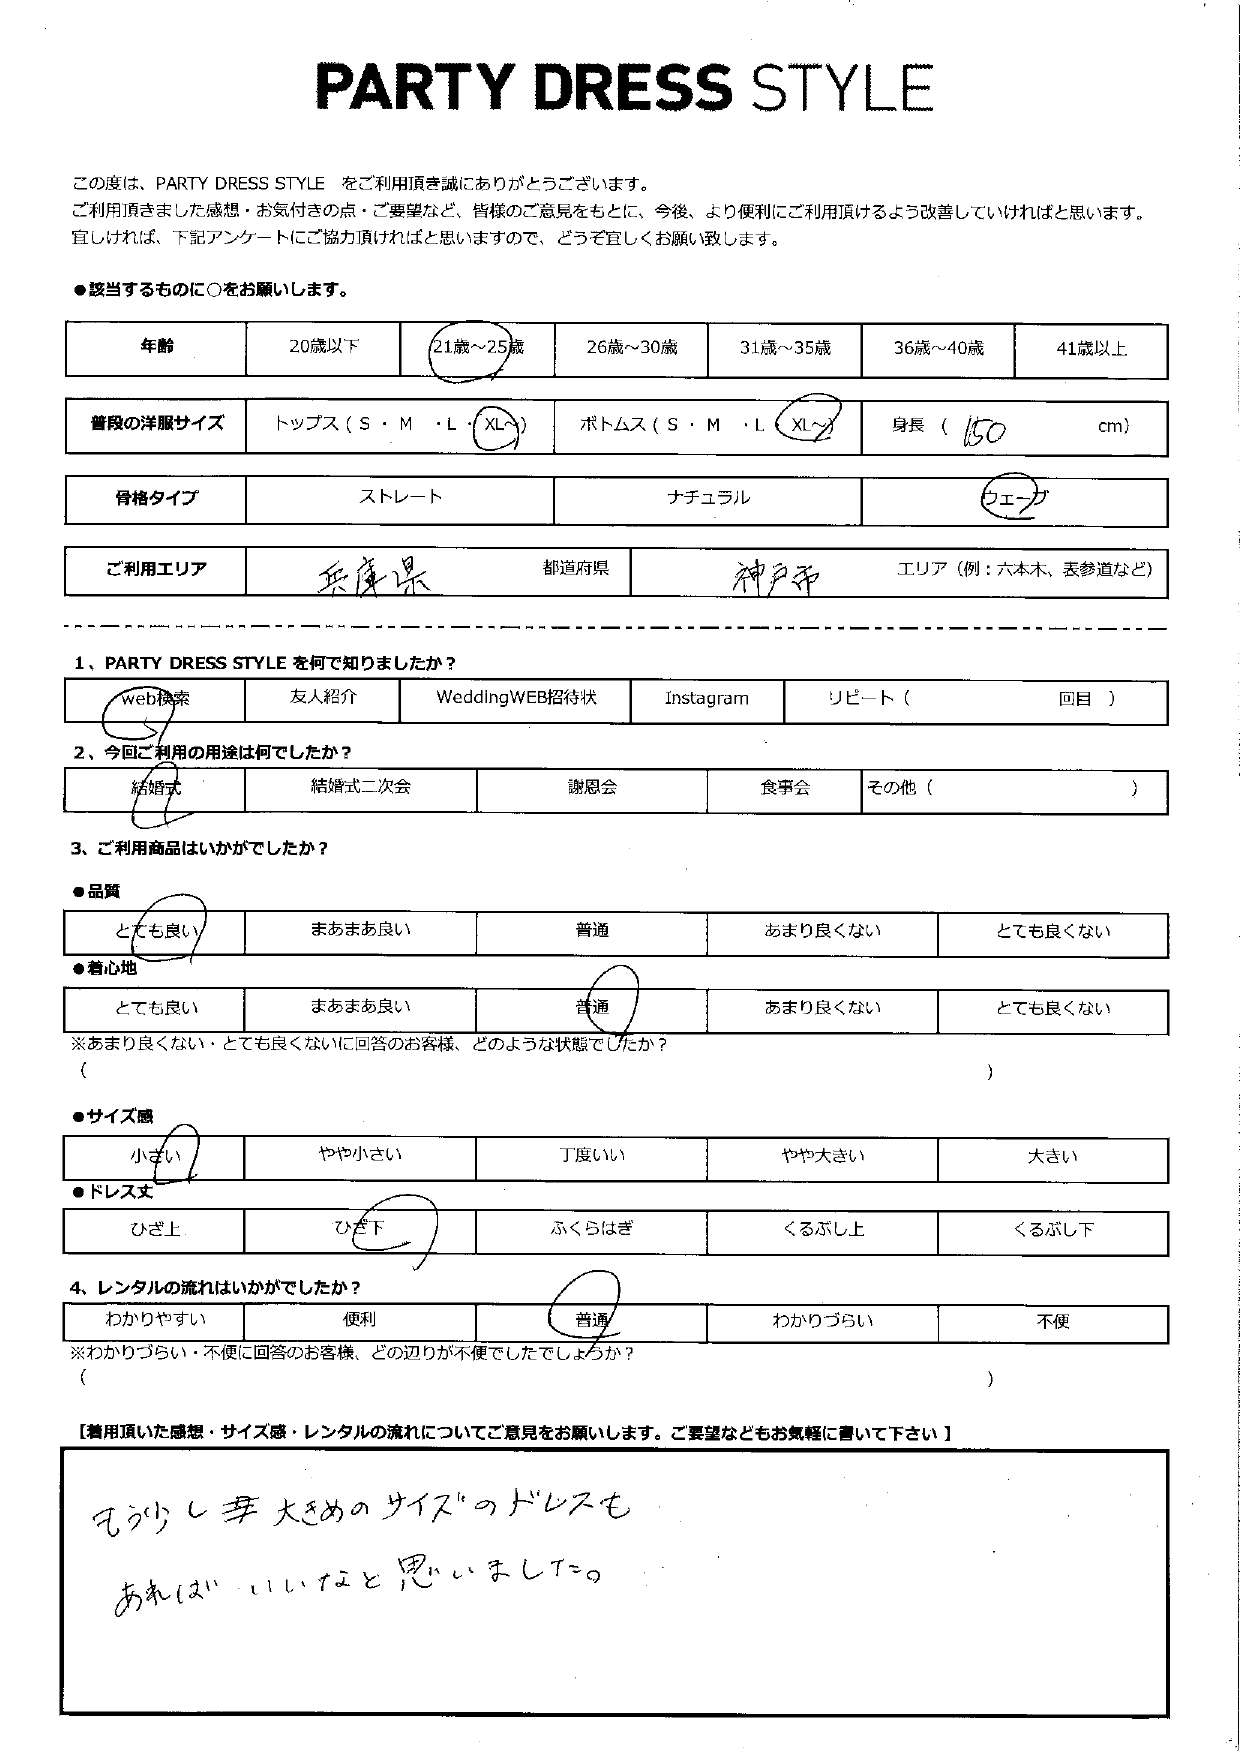 PARTY DRESS STYLE
この度は、PARTY DRESS STYLE をご利用頂き誠にありがとうございます。
ご利用頂きました感想・お気付きの点・ご要望など、皆様のご意見をもとに、今後、より便利にご利用頂けるよう改善していければと思います。
宜しければ、下記アンケートにご協力頂ければと思いますので、どうぞ宜しくお願い致します。
●該当するものに○をお願いします。
年齢 20歳以下 21歳～25歳 26歳～30歳 31歳～35歳 36歳～40歳 41歳以上
普段の洋服サイズ トップス ( S ・ M ・L ・ XL～) ボトムス ( S ・ M ・L ・ XL～) 身長 ( 150 cm)
骨格タイプ ストレート ナチュラル ウェーブ
ご利用エリア 兵庫県 都道府県 神戸市 エリア（例：六本木、表参道など）
1、PARTY DRESS STYLE を何で知りましたか？
web検索 友人紹介 WeddingWEB招待状 Instagram リピート（ 回目 ）
2、今回ご利用の用途は何でしたか？
結婚式 結婚式二次会 謝恩会 食事会 その他（ ）
3、ご利用商品はいかがでしたか？
●品質
とても良い まあまあ良い 普通 あまり良くない とても良くない
●着心地
とても良い まあまあ良い 普通 あまり良くない とても良くない
※あまり良くない・とても良くないに回答のお客様、どのような状態でしたか？
( )
●サイズ感
小さい やや小さい 丁度いい やや大きい 大きい
●ドレス丈
ひざ上 ひざ下 ふくらはぎ くるぶし上 くるぶし下
4、レンタルの流れはいかがでしたか？
わかりやすい 便利 普通 わかりづらい 不便
※わかりづらい・不便に回答のお客様、どの辺りが不便でしたでしょうか？
( )
[着用頂いた感想・サイズ感・レンタルの流れについてご意見をお願いします。ご要望などもお気軽に書いて下さい ]
もう少し 大きめのサイズのドレスも
あればいいなと思いました。